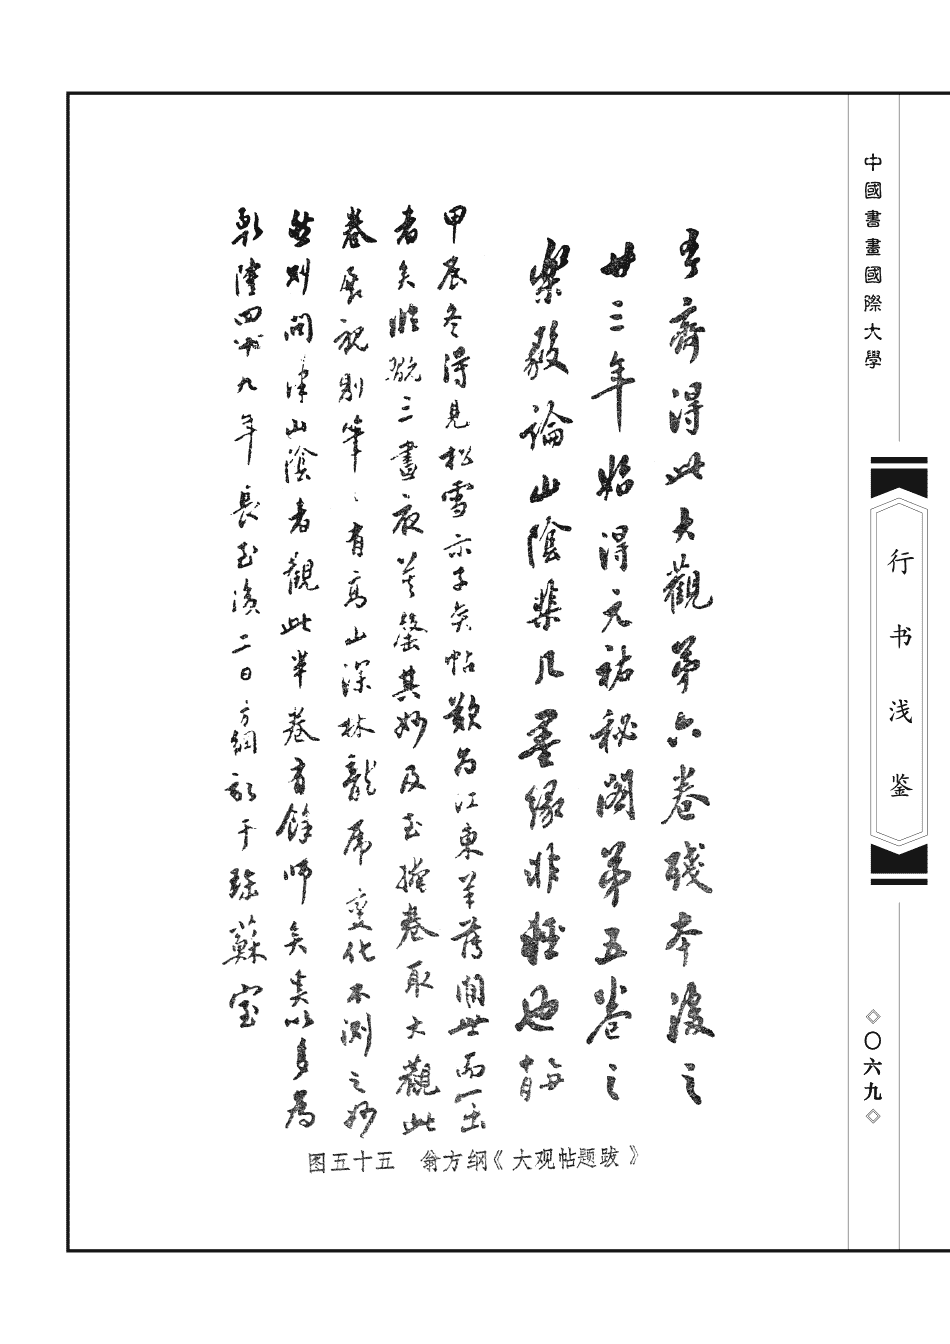 予齋得此大觀第六卷殘本後之
廿二年始得元祐秘閣第五卷之
樂毅論山陰棐几墨緣非輕也
甲辰冬得見松雪示子矣帖歎為江東羊薄聞世而一出
者矣臨翫三晝夜其妙及玄攡卷取大觀此
卷展視則筆〻有高山深林龍虎變化不測之妙
然則問津山陰者觀此半卷有餘師矣奚以多為
乾隆四十九年長至後二日方綱記于蘇室
图五十五 翁方纲《大观帖题跋》
中國書畫國際大學
行书浅鉴
◇〇六九◇